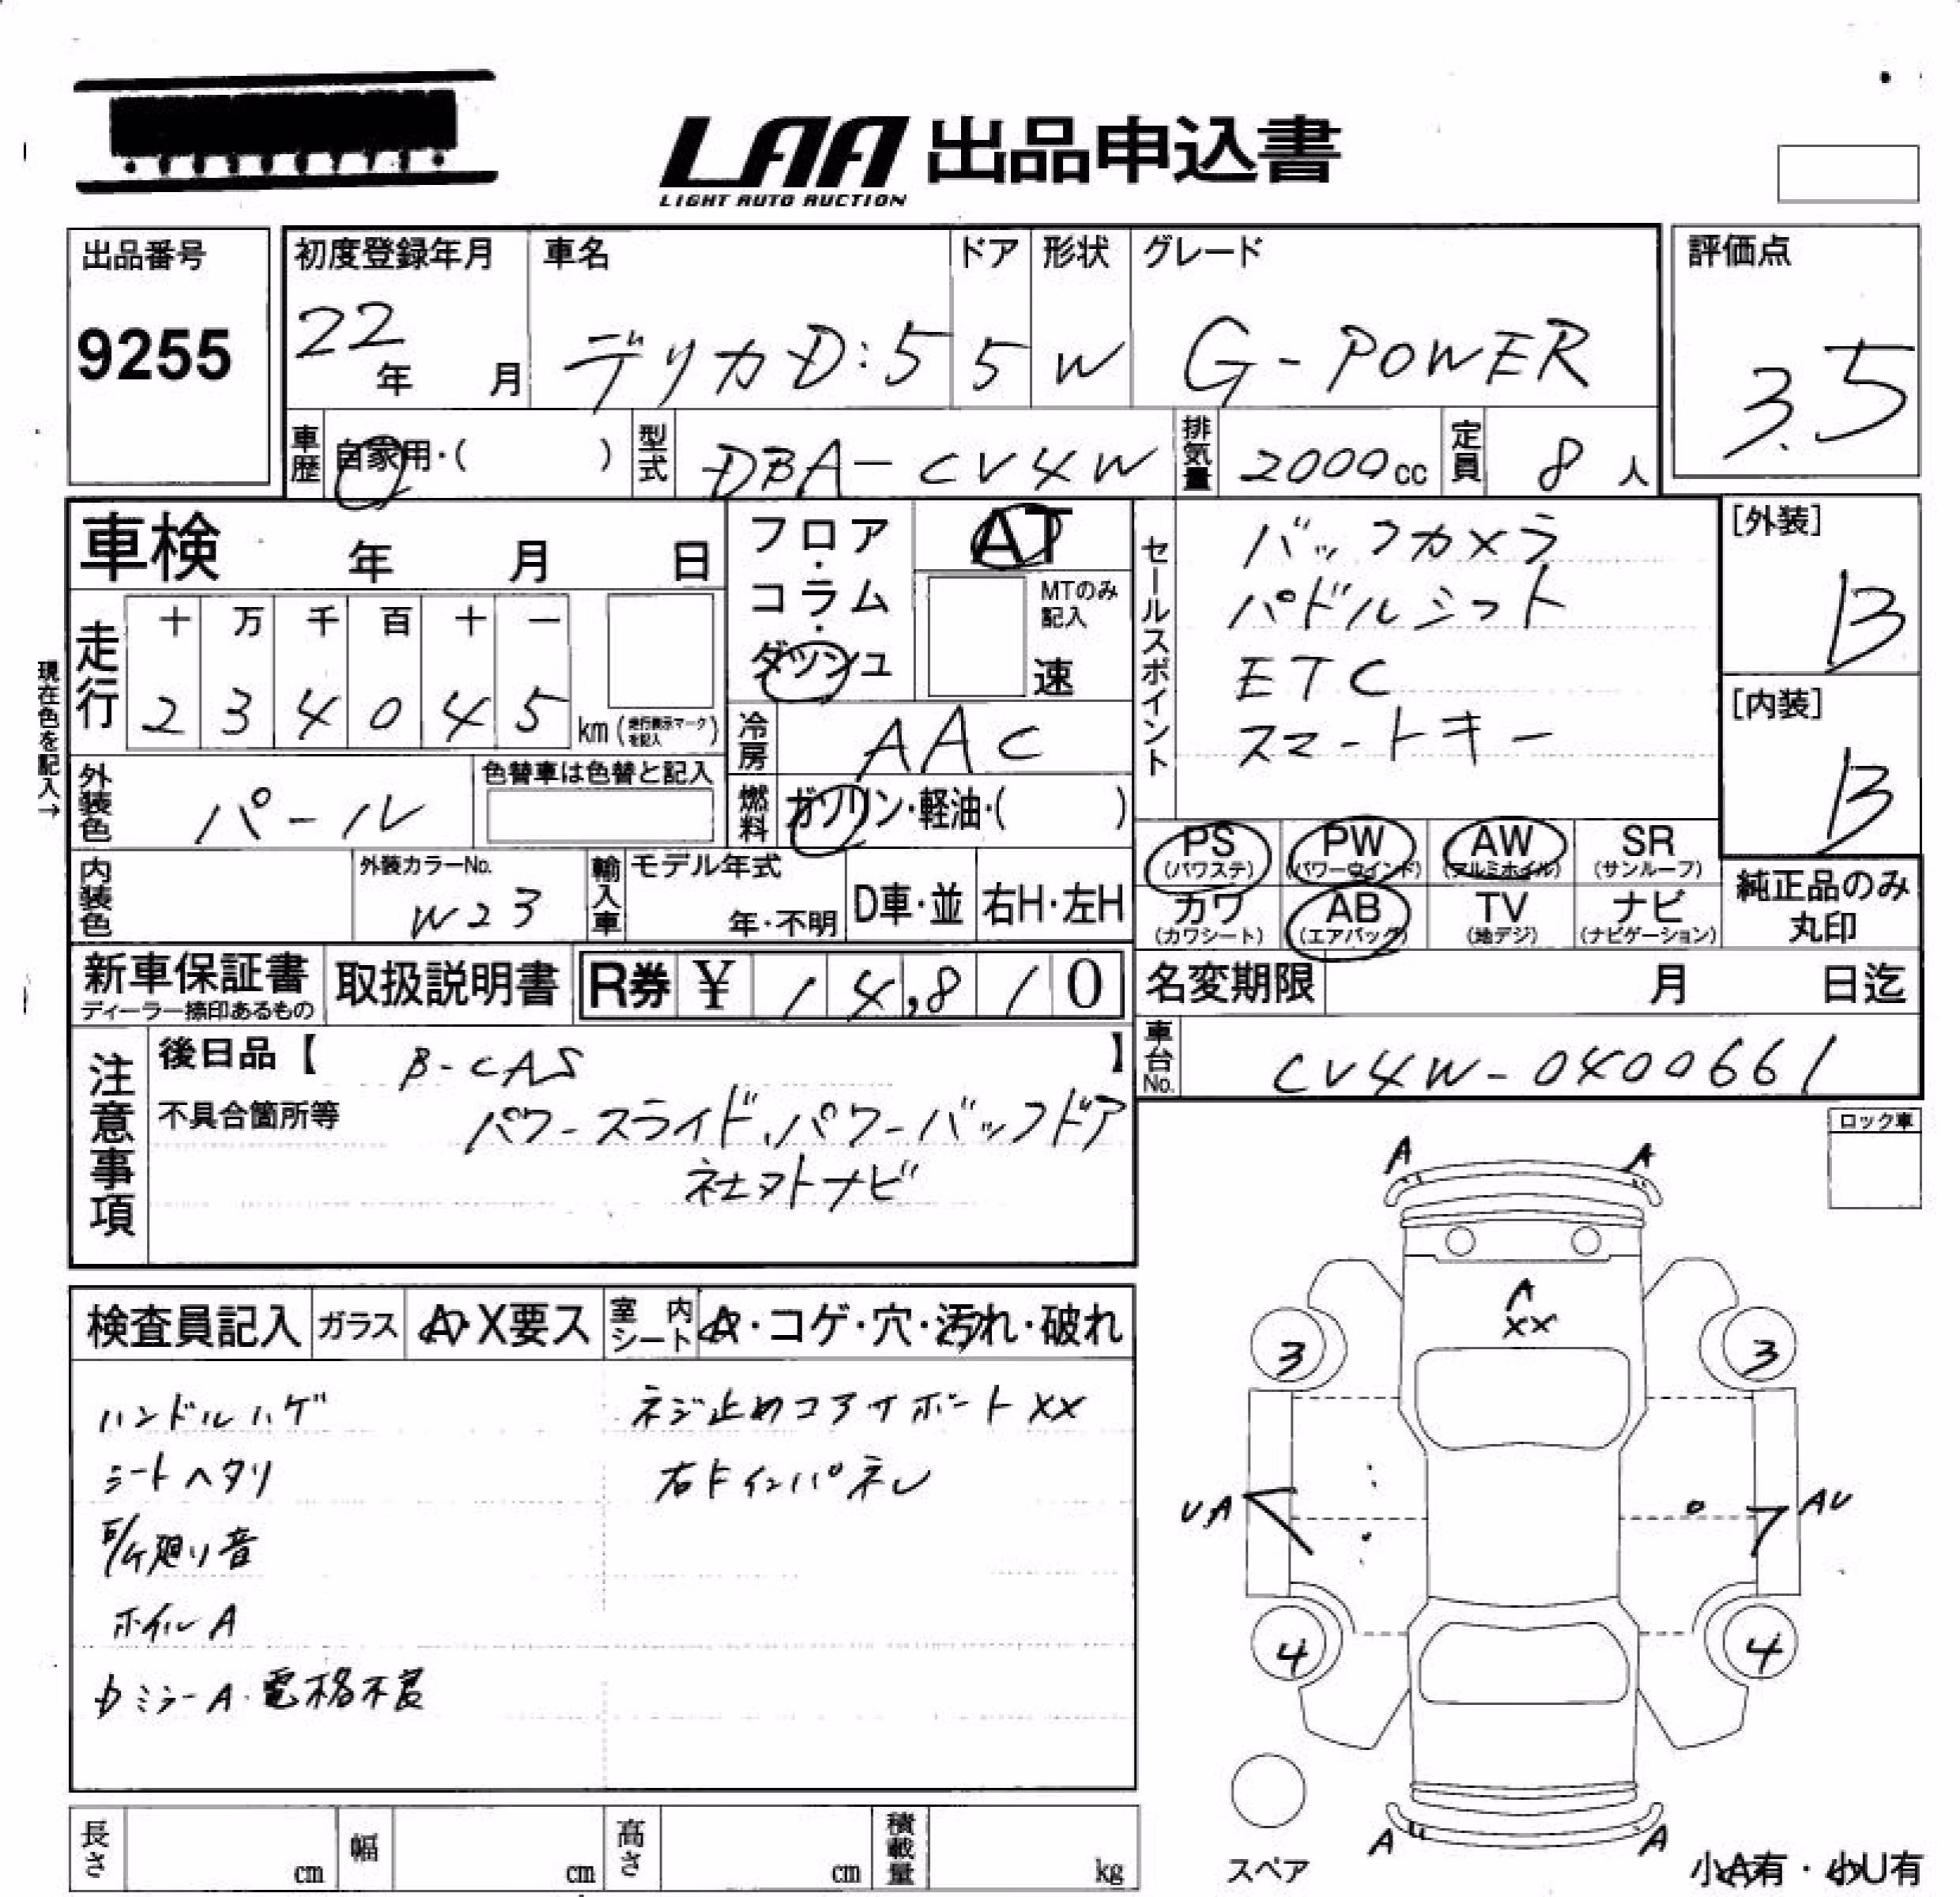 LAA 出品申込書
LIGHT AUTO AUCTION
出品番号
9255
初度登録年月
22年 月
車名
デリカD:5
ドア
5
形状
W
グレード
G-POWER
評価点
3.5
車歴 自家用・( )
型式 DBA-CV4W
排気量 2000cc
定員 8人
車検 年 月 日
フロア・コラム・ダッシュ
AT
MTのみ記入
速
セールスポイント
バックカメラ
パドルシフト
ETC
スマートキー
[外装]
B
[内装]
B
現在色を記入→
走行
十 万 千 百 十 一
2 3 4 0 4 5 km (走行表示マークを記入)
冷房 AAC
外装色 パール
色替車は色替と記入
燃料 ガソリン・軽油・( )
PS (パワステ)
PW (パワーウインド)
AW (アルミホイル)
SR (サンルーフ)
カワ (カワシート)
AB (エアバッグ)
TV (地デジ)
ナビ (ナビゲーション)
純正品のみ丸印
内装色
外装カラーNo.
W23
輸入車
モデル年式
年・不明
D車・並
右H・左H
新車保証書
ディーラー捺印あるもの
取扱説明書
R券 ¥ 14,810
名変期限 月 日迄
車台No. CV4W-0400661
注意事項
後日品【 B-CAS 】
不具合箇所等
パワースライド、パワーバックドア
社外ナビ
ロック車
検査員記入
ガラス A・X要ス
室内シート A・コゲ・穴・汚れ・破れ
ハンドルハゲ
シートヘタリ
廻り音
ホイルA
ミラーA・電格不良
ネジ止めコアサポートXX
右Fインパネレ
A A
A
XX
3 3
UA AU
4 4
A A
スペア
小A有・小U有
長さ cm
幅 cm
高さ cm
積載量 kg